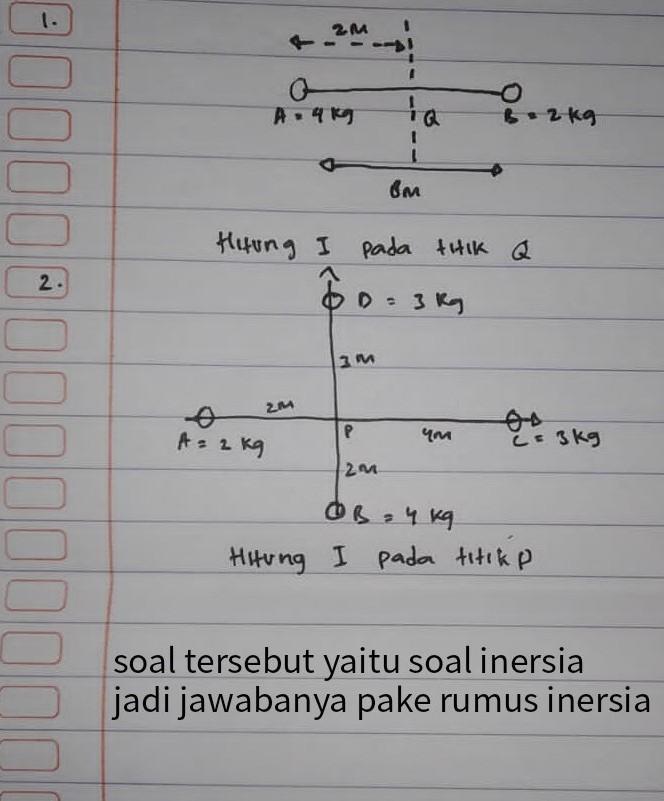 1.
2M
A = 4 kg
Q
B = 2 kg
8M
Hitung I pada titik Q
2.
D = 3 kg
3M
2M
A = 2 kg
P
4M
C = 3 kg
2M
B = 4 kg
Hitung I pada titik P
soal tersebut yaitu soal inersia
jadi jawabanya pake rumus inersia